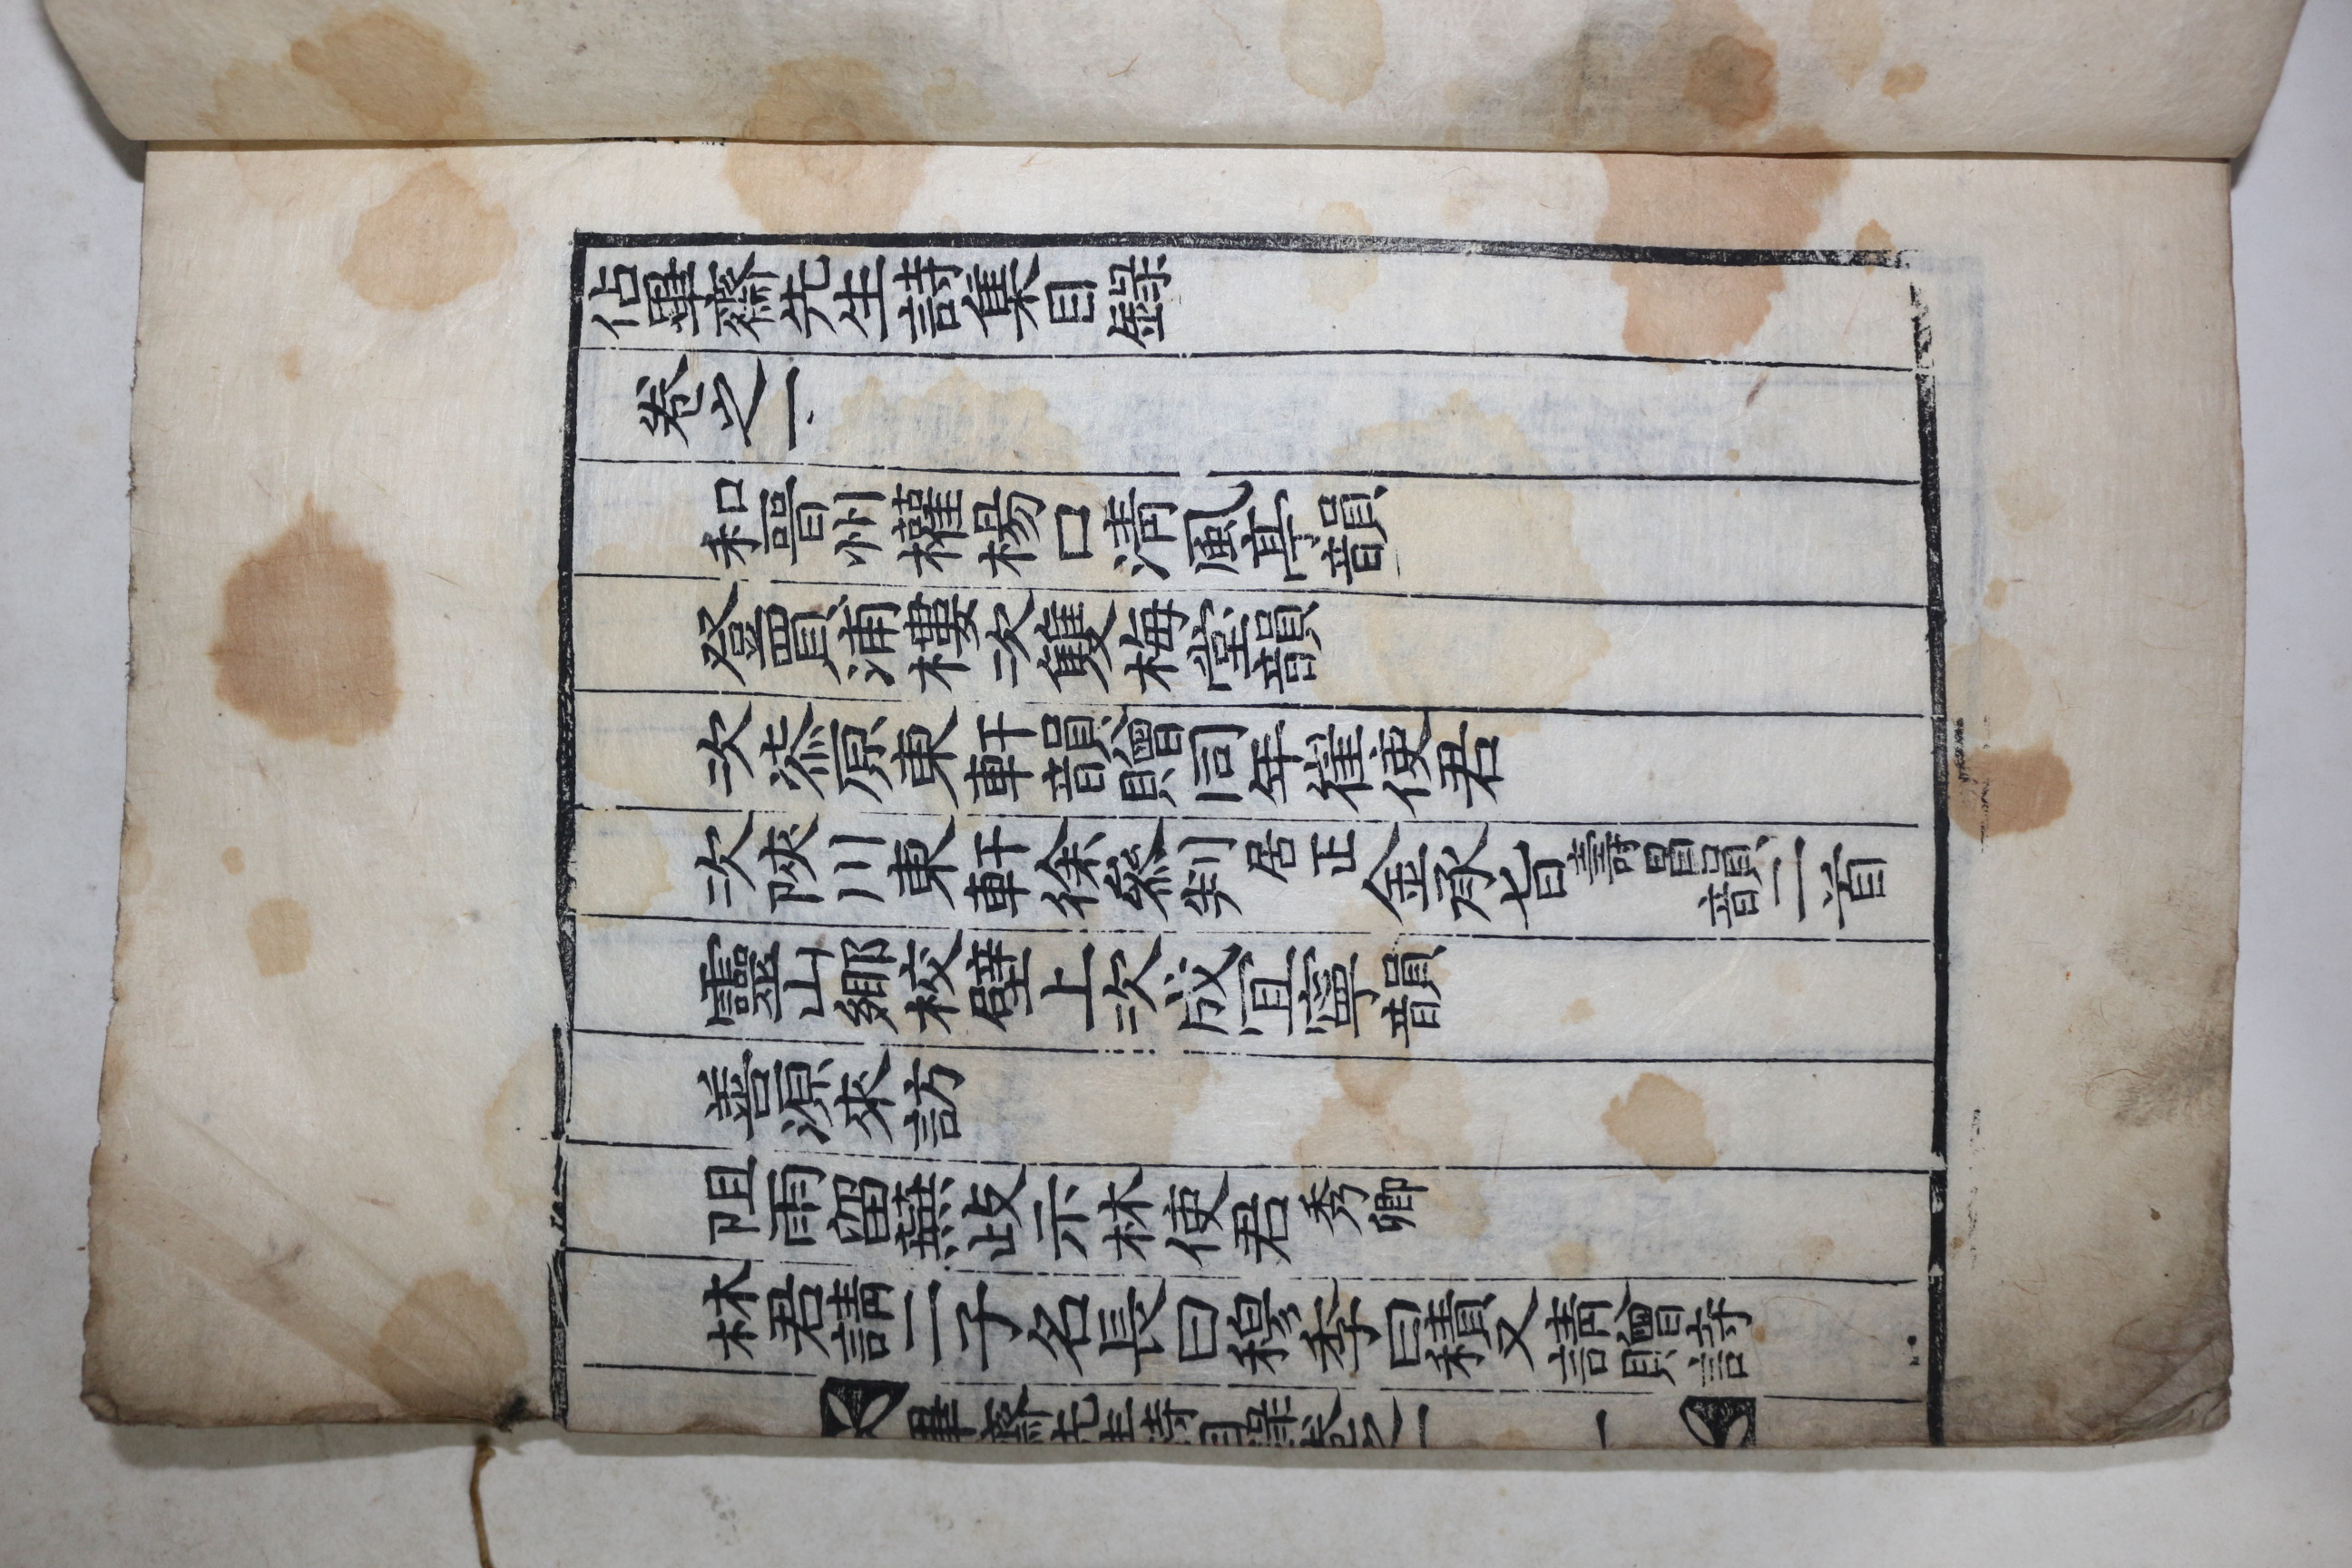 佔畢齋先生詩集目錄
卷之一
和晉州權楊口清風亭韻
登買浦樓次雙梅堂韻
次柒原東軒韻贈同年崔使君
次陜川東軒徐叅判居正金承旨壽寧韻二首
靈山鄉校壁上次成宜寧韻
善源來訪
阻雨留燕歧示林使君秀卿
林君請二子名長曰穆季曰積又請贈詩
畢齋先生詩目錄卷之一 一